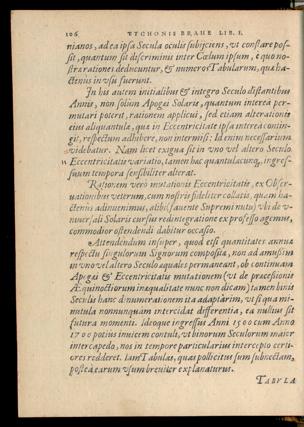 106 TYCHONIS BRAHE LIB. I.
nianos, ad ea ipsa Secula oculis subijciens, vt constare pos-
sit, quantum sit discriminis inter Cœlum ipsum, e quo no-
stræ rationes deducuntur, & numeros Tabularum, qua ha-
ctenus in vsu fuerunt.
In his autem initialibus & integro Seculo distantibus
Annis, non solum Apogæi Solaris, quantum interea per-
mutari poterit, rationem applicui, sed etiam alterationis
eius aliquantula, quæ in Eccentricitate ipsa interea contin-
git, respectum adhibere, non intermisi: Id enim necessarium
videbatur. Nam licet exigua sit in vno vel altero Seculo
Eccentricitatis variatio, tamen hac quantulacunq, ingres-
suum tempora sensibiliter alterat.
Rationem vero mutationis Eccentricitatis, ex Obser-
uationibus veterum, cum nostris fideliter collatis, quam ha-
ctenus adinuenimus, alibi, fauente Supremi nutu, vbi de v-
niuersali Solaris cursus redintegratione ex professo agemus,
commodior ostendendi dabitur occasio.
Attendendum insuper, quod etsi quantitates annuæ
respectu singulorum Signorum composita, non ad amussim
in vno vel altero Seculo æquales permaneant, ob continuam
Apogæi & Eccentricitatis mutationem (vt de præcessionis
Æquinoctiorum inæqualitate nunc non dicam) tamen binis
Seculis hanc dinumerationem ita adaptarim, vt si qua mi-
mutula nonnunquam intercidat differentia, ea nullius sit
futura momenti. Ideoque ingressus Anni 1500 cum Anno
1700 potius inuicem contuli, vt binorum Seculorum maior
intercapedo, nos in tempore particularius intercepto certi-
ores redderet. Iam Tabulas, quas pollicitus sum subnectam,
postea earum vsum breuiter explanaturus.
TABVLA